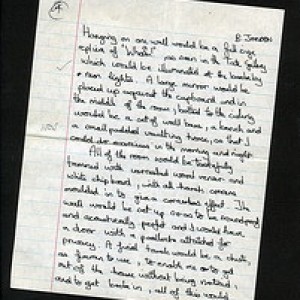 4
B. JORDEN
Hanging on one wall would be a full size
replica of "Whistler" as seen in the Tate gallery
which would be illuminated at the
+ neon lights. A large mirror would be
placed up against the cupboard and in
the middle of the room, bolted to the ceiling
would be a set of wall bars, a bench and
a small padded vaulting horse, so that I
could do exercises in the morning and night.
All of the room would be tastefully
trimmed with varnished wood veneer and
white chip board, with all corners
moulded in to give a effect. The
wall would be set up so as to be soundproof
and acoustically perfect and I would have
a door with a padlock attached for
privacy. A final touch would be a chute,
as I'm to use, to enable me to get
out of the house without being noticed,
and to get back in, all of this would